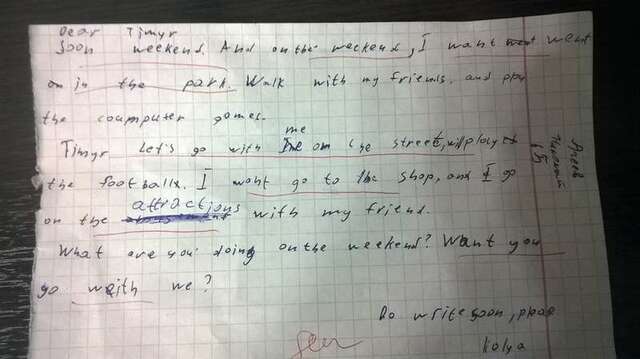 Dear Timyr
Soon weekend. And on the weekend, I want went
on in the park. Walk with my friends. and play
the coumputer games.
me
Timyr Let's go with on the street, will play
the footballx. I want go to the shop, and I go
attractions
on the with my friend.
What are you doing on the weekend? Want you
go weith me?
Do write soon, please
Kolya